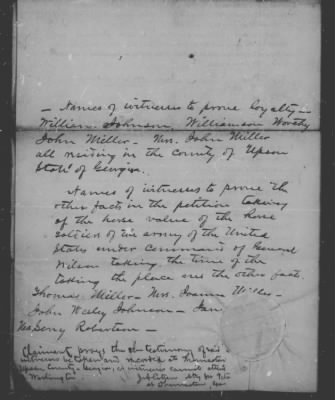 – Names of witnesses to prove loyalty –
William Johnson, Williamson Worthy
John Miller – Mrs. John Miller
all residing in the County of Upson
State of Georgia.
Names of witnesses to prove the
other facts in the petition taking
of the horse value of the horse
soldiers of the army of the United
States under Command of General
Wilson taking, the time of the
taking the place and the other facts.
Thomas Miller – Mrs. Joanna Miller –
John Wesly Johnson –
Berry Robertson –
Claimant prays the testimony of
witnesses be taken and recorded at Thomaston
Upson County – Georgia, as witnesses cannot attend
Washington.
at Thomaston, Ga